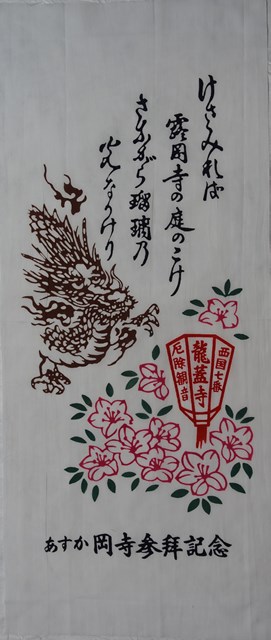 けさみれば
露岡寺の庭のこけ
さながら瑠璃乃
光なりけり
西国七番
龍蓋寺
厄除観音
あすか 岡寺参拝記念